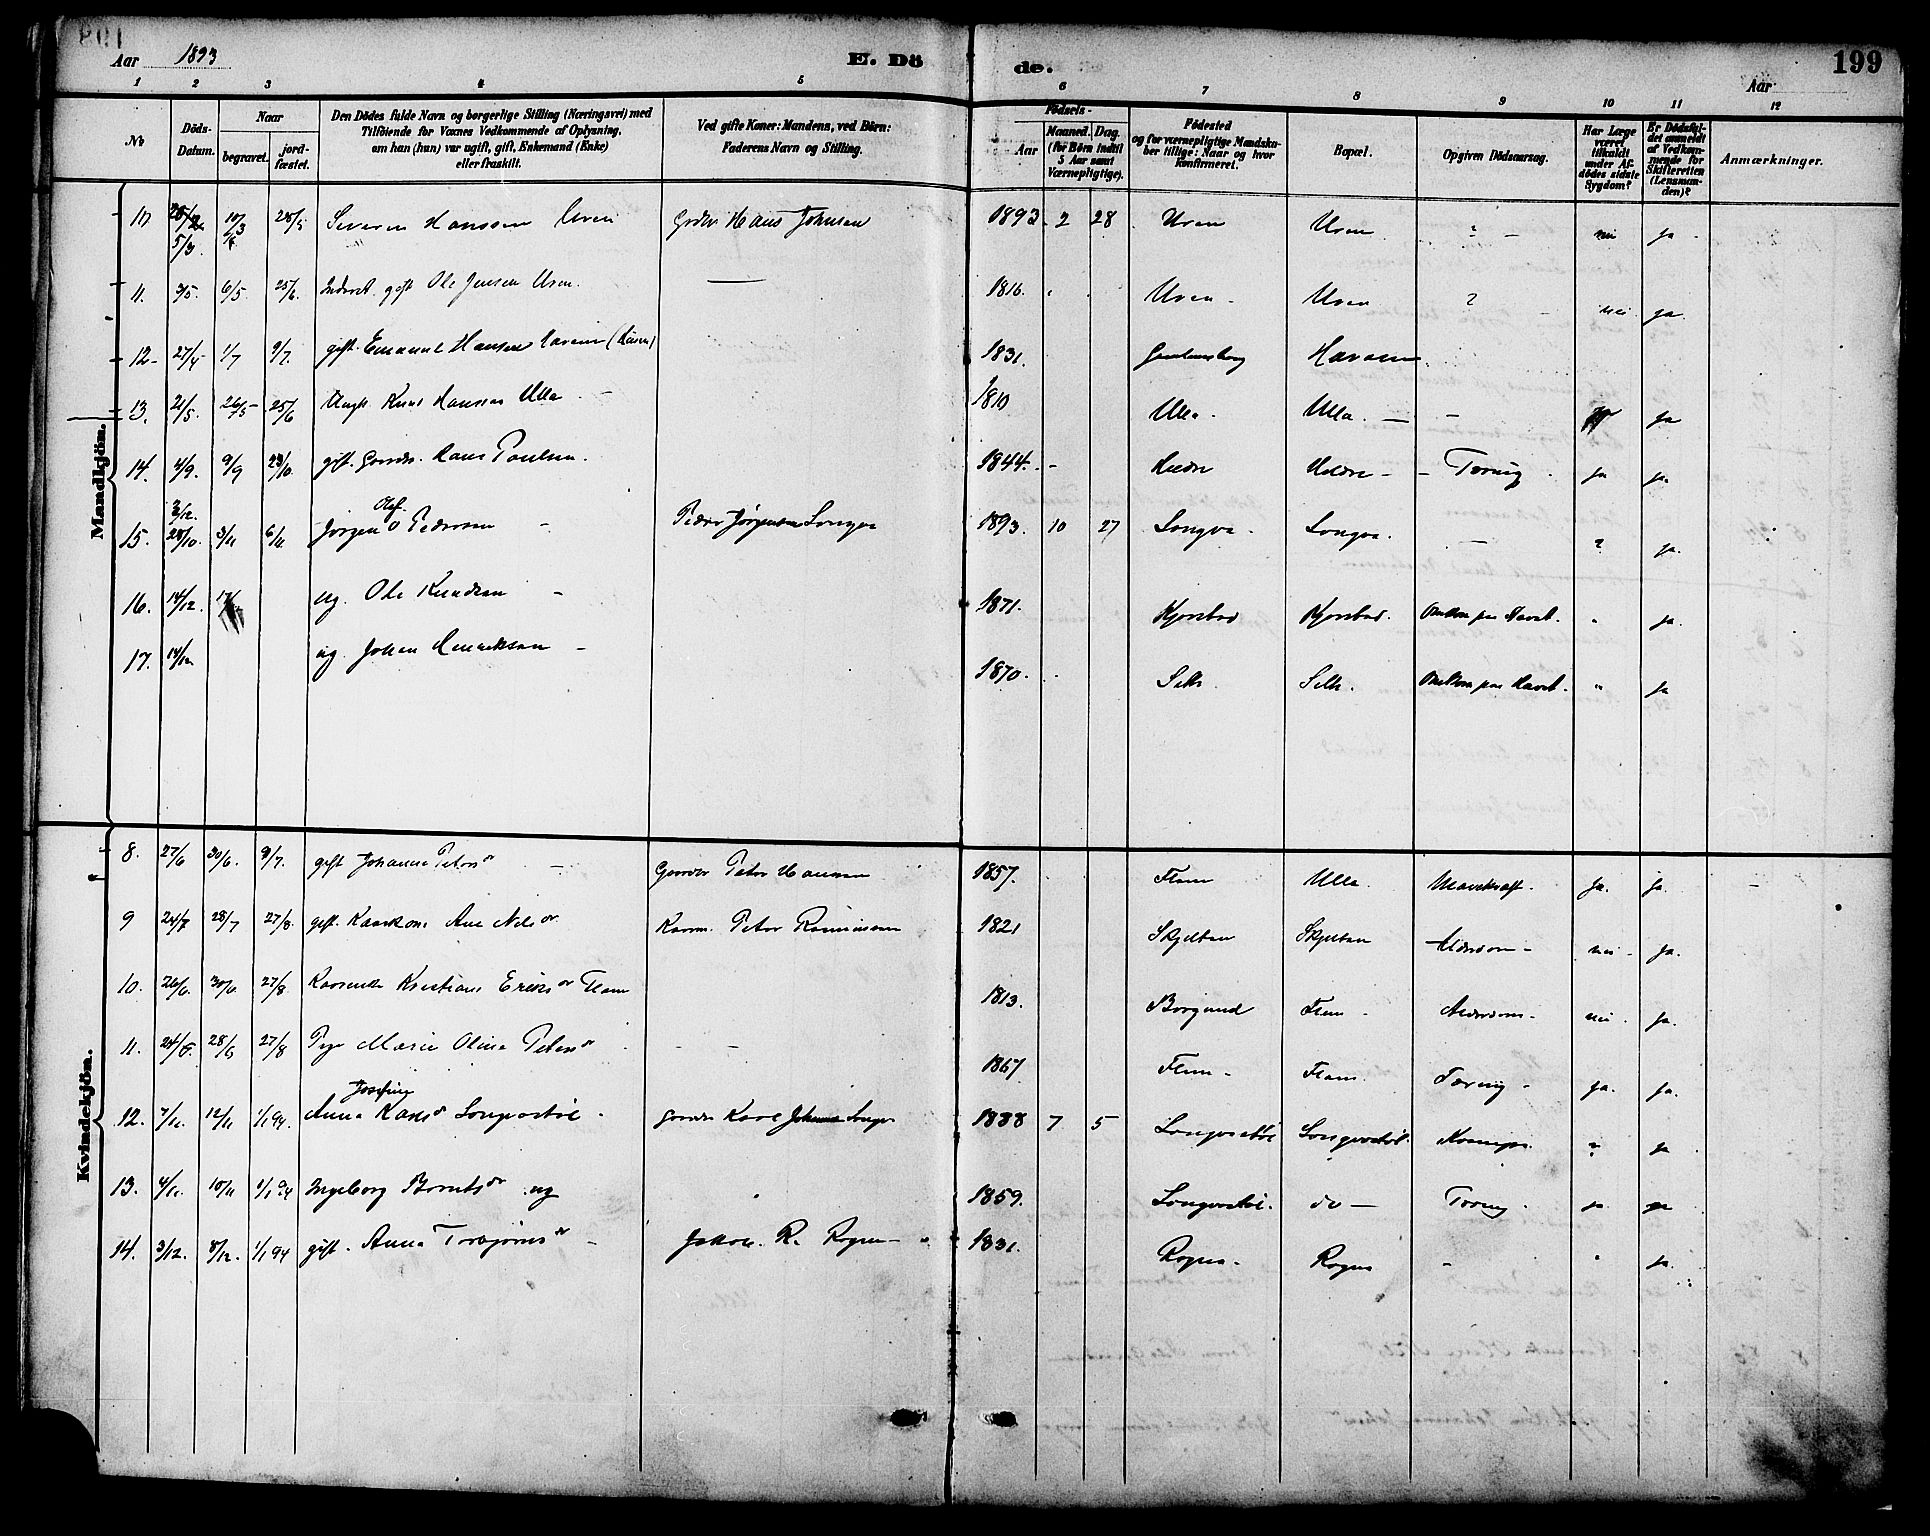 199
Aar 1893
E. Dö
de.
Aar
1 2 3 4 5 6 7 8 9 10 11 12
No
Döds-Datum.
Naar
begravet.
jord-fæstet.
Den Dödes fulde Navn og borgerlige Stilling (Næringsvei) med
Tilföiende for Voxnes Vedkommende af Oplysning,
om han (hun) var ugift, gift, Enkemand (Enke)
eller fraskilt.
Ved gifte Koner: Mandens, ved Börn:
Faderens Navn og Stilling.
Födsels-
Aar
Maaned. Dag.
(for Börn indtil
5 Aar samt
Værnepligtige).
Födested
og for værnepligtige Mandska-
ber tillige: Naar og hvor
konfirmeret.
Bopæl.
Opgiven Dödsaarsag.
Har Læge
været
tilkaldt
under Af-
dödes sidste
Sygdom?
Er Dödsfal-
det anmeldt
af Vedkom-
mende for
Skifteretten
(Lensman-
den)?
Anmærkninger.
Mandkjön.
10 5/3 10/3 Severin Hanssen Uren Hans Johnsen 1893 2 28 Uren Uren ? nei ja
11. 3/5. 6/5 25/6. Inderst. gift Ole Jensen Uren. 1816. Uren Uren ? nei. ja.
12 27/4 1/7 9/7. gift. Emanuel Hansen 1831.
13. 21/5. 26/5 25/6 Knut Hanssen Ulla 1810 Ulla. Ulla ja
14. 4/9. 9/9 23/10. gift. Gaardbr. Hans Paulsen. 1844. Hildre Hildre Tæring ja ja.
15. 28/10. 3/11 6/11. Jørgen Olaf Pedersen Peder Jørgensen Longva 1893. 10 27 Longva. Longva. ? ja.
16. 14/12. ug. Ole Knudsen 1871. Kjerstad Kjerstad. Omkom paa Havet. " ja.
17. 14/12 ug. Johan Henriksen 1870. Omkom paa Havet. " ja
Kvindekjön.
8. 27/6 30/6. 9/7. gift Johanne Petersdr Peter Hansen 1857. Flem Ulla. Mavekræft. ja. ja.
9 24/7 28/7 27/8. gift. Ane Nilsdr Peter Rasmussen 1821 Skjeltan Skjeltan Alderdom nei ja.
10. 26/6. 30/6 27/8. Kristiane Eriksdr Flem 1813. Borgund Flem Alderdom nei ja.
11. 24/6. 28/6 27/8 Pige Marie Oline Petersdr 1867 Flem Flem. Tæring ja. ja.
12. 7/11. 12/11 1/1 94. Anna Josefine Karlsdr Longvastøl Karl Johansen Longva 1888 7 5 Longvastøl Longvastøl. ? ja
13. 4/11. 10/11 1/1 94 Ingeborg Berntsdr ug 1859. Longvastøl. do Tæring ja. ja
14. 3/12. 8/12. 1/1 94 gift. Anna Torbjørnsdr Jakob R. Rogne 1831. Rogne. Rogne " ja.